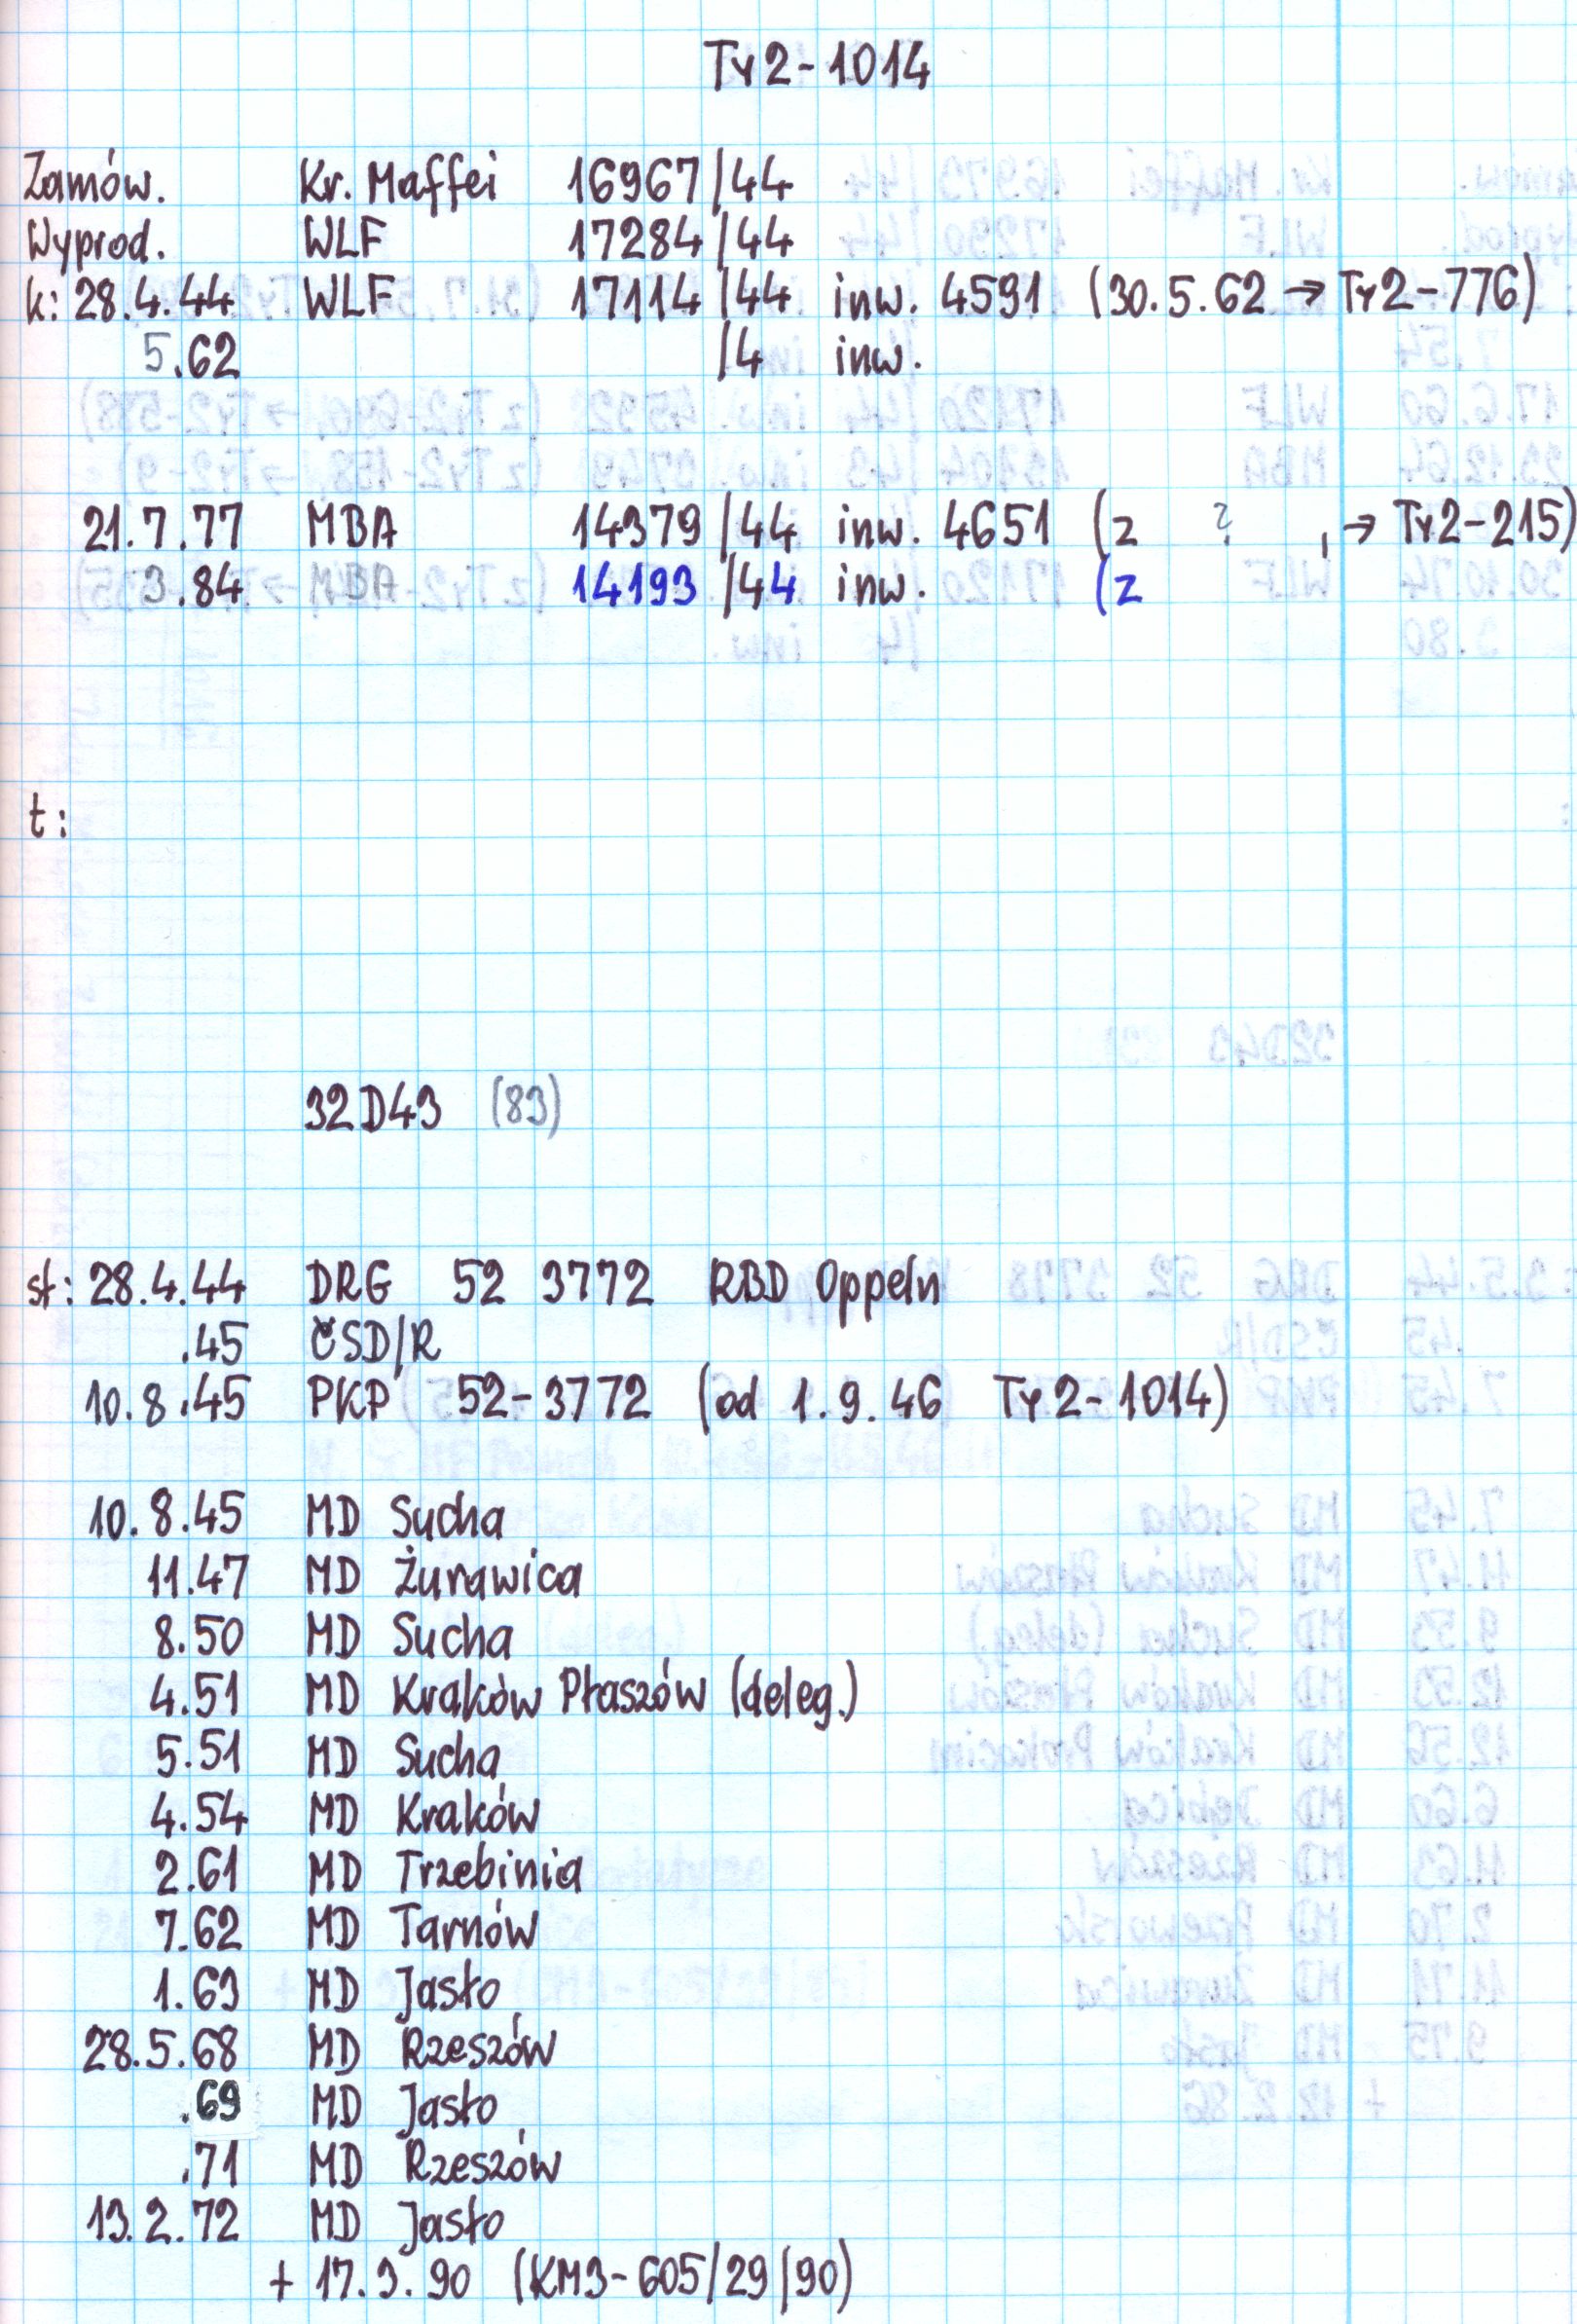 Ty2-1014
Zamów. Kr. Maffei 16967/44
Wyprod. WLF 17284/44
k: 28.4.44 WLF 17114/44 inw. 4591 (30.5.62 → Ty2-776)
5.62 /4 inw.
21.7.77 MBA 14379/44 inw. 4651 (z ? , → Ty2-215)
3.84 MBA 14193/44 inw. (z
t:
32D43 (83)
st: 28.4.44 DRG 52 3772 RBD Oppeln
.45 ČSD/R
10.8.45 PKP 52-3772 (od 1.9.46 Ty2-1014)
10.8.45 MD Sucha
11.47 MD Żurawica
8.50 MD Sucha
4.51 MD Kraków Płaszów (deleg.)
5.51 MD Sucha
4.54 MD Kraków
2.61 MD Trzebinia
7.62 MD Tarnów
1.63 MD Jasło
28.5.68 MD Rzeszów
.69 MD Jasło
.71 MD Rzeszów
13.2.72 MD Jasło
+ 17.3.90 (KM3-605/29/90)